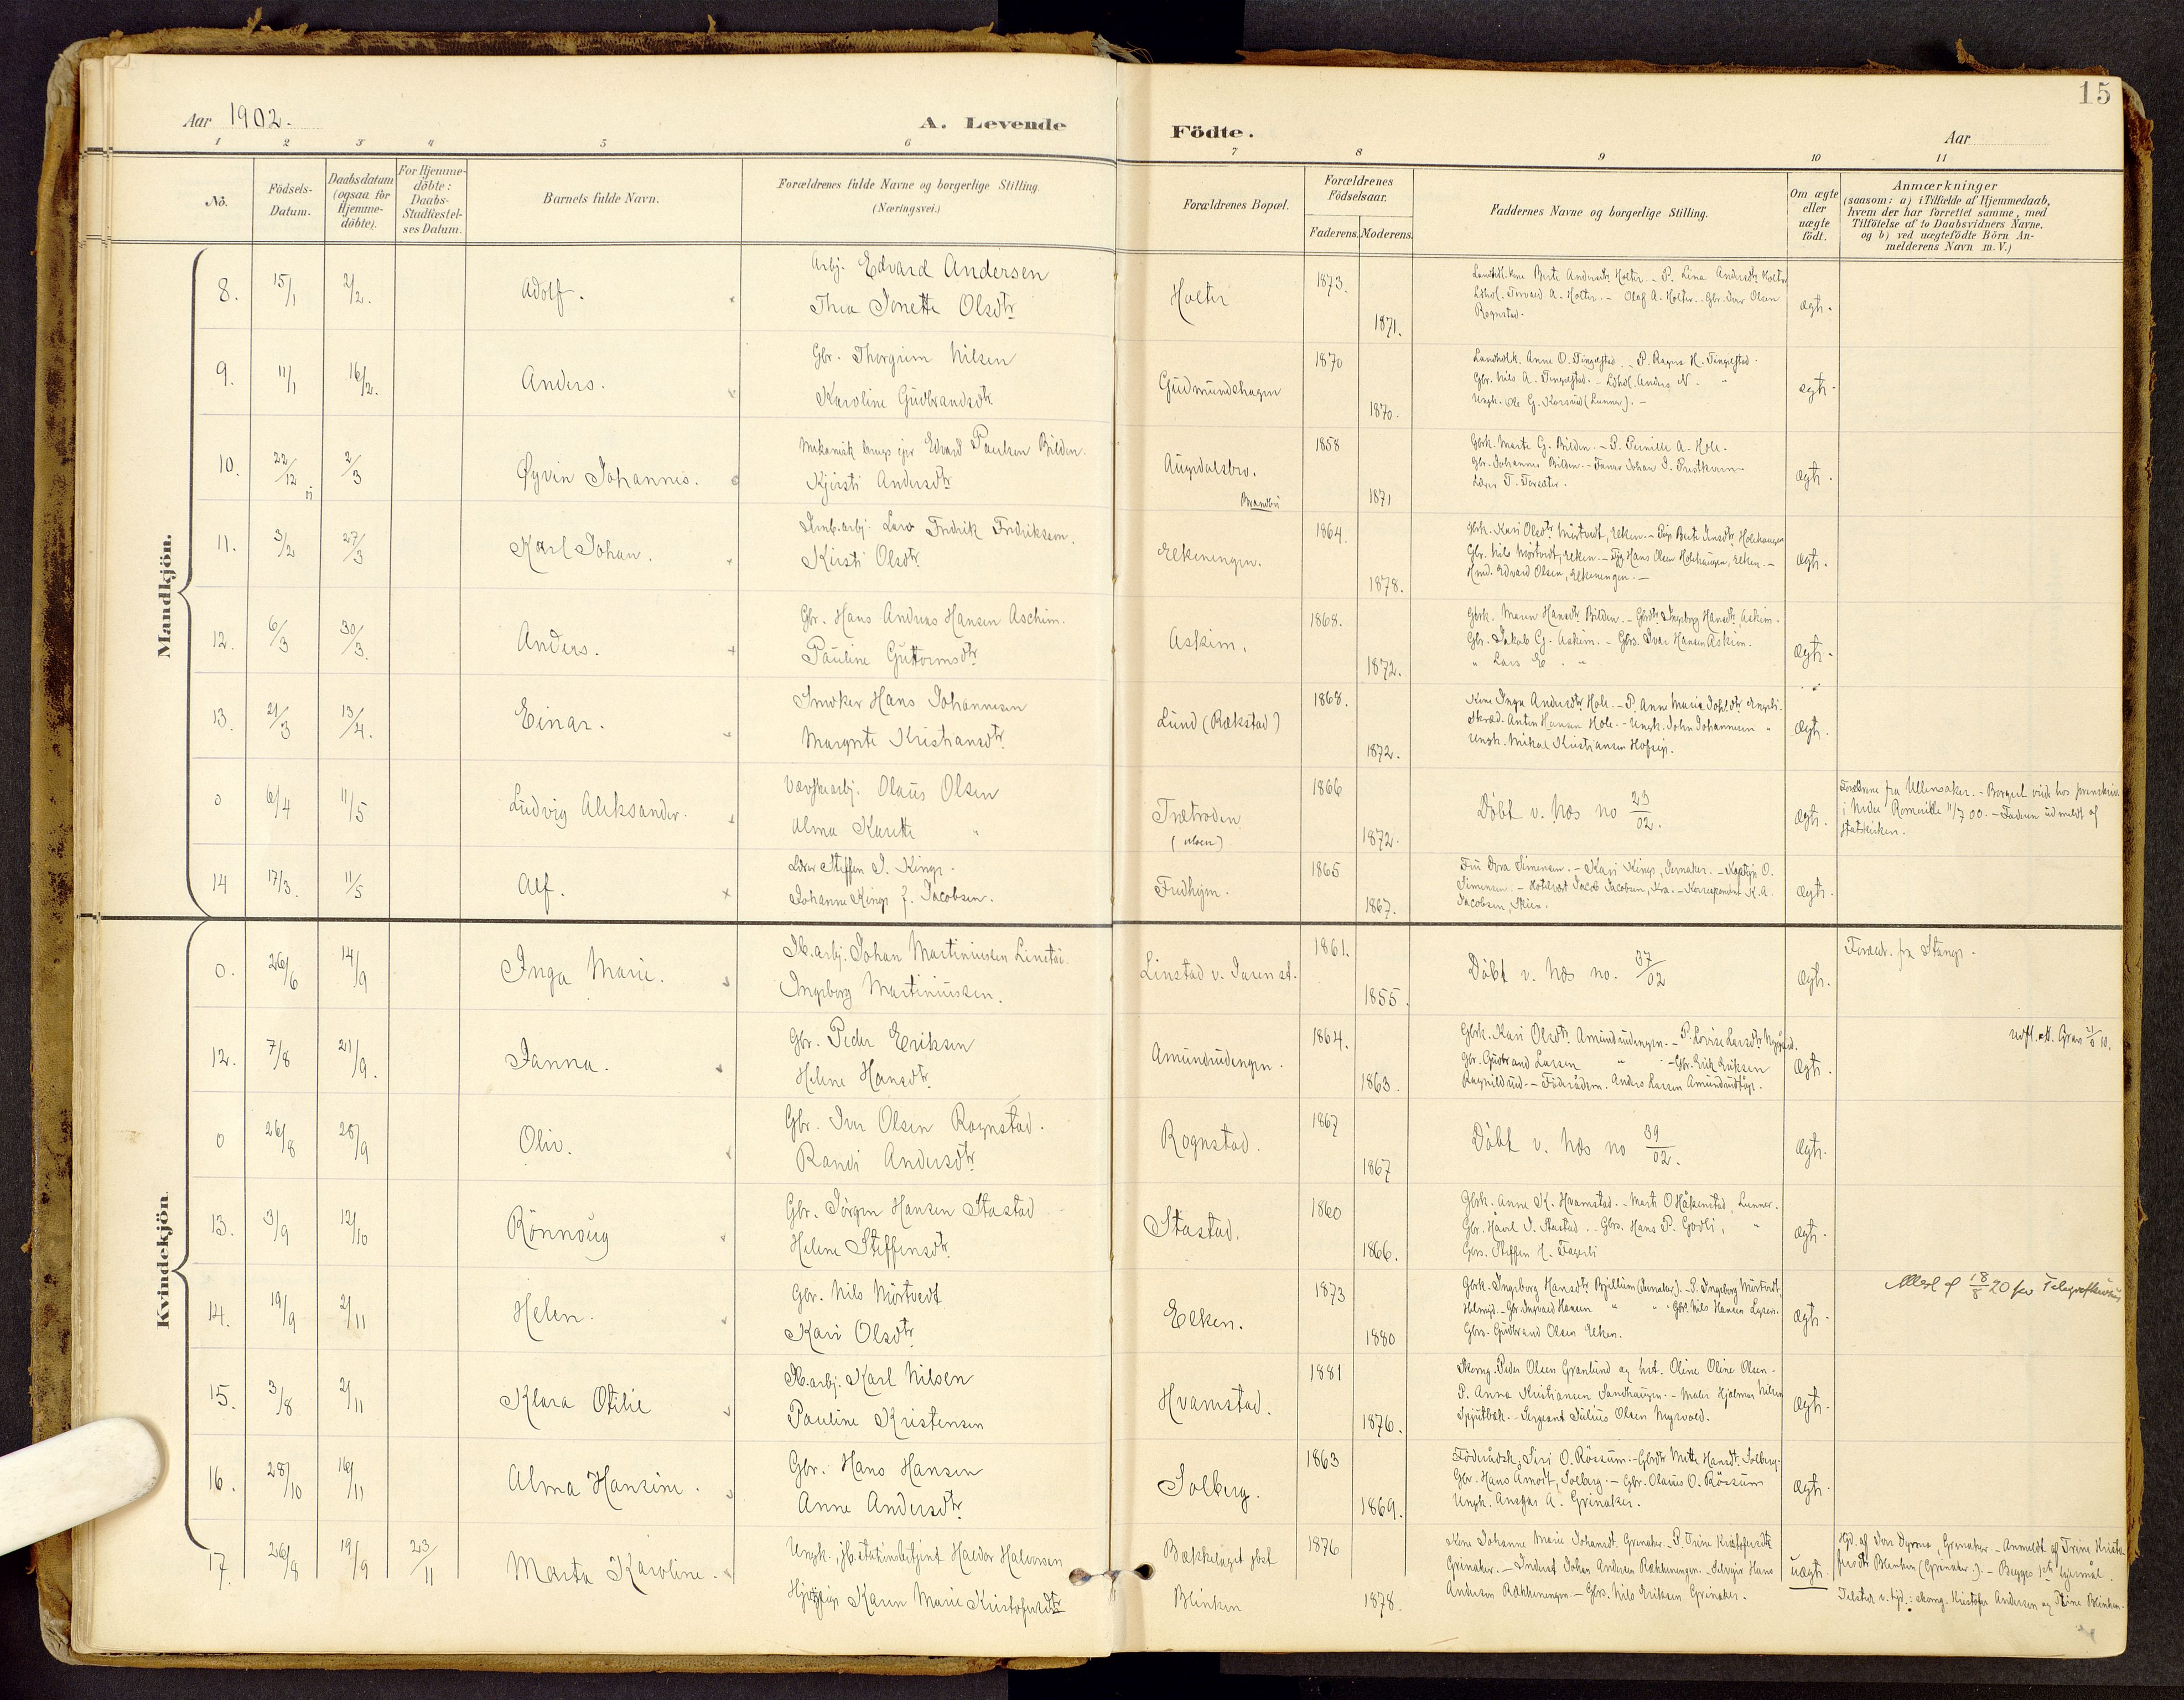 15
Aar 1902.
A. Levende Födte.
Aar
1 2 3 4 5 6 7 8 9 10 11
No.
Födsels-
Datum.
Daabsdatum
(ogsaa for
Hjemme-
döbte).
For Hjemme-
döbte:
Daabs-
Stadfæstel-
ses Datum.
Barnets fulde Navn.
Forældrenes fulde Navne og borgerlige Stilling.
(Næringsvei.)
Forældrenes Bopæl.
Forældrenes
Födselsaar.
Faderens. Moderens.
Faddernes Navne og borgerlige Stilling.
Om ægte
eller
uægte
födt.
Anmærkninger
(saasom: a) i Tilfælde af Hjemmedaab,
hvem der har forrettet samme, med
Tilföielse af to Daabsvidners Navne,
og b) ved uægtefödte Börn An-
melderens Navn m. V.)
Mandkjön.
8. 15/1 2/2. Adolf.
Arbj. Edvard Andersen
Thea Jonette Olsdtr
Holter 1873. 1871.
Berte Andersdtr Holter. - P. Lina Andersdtr Holter
Torvald A. Holter. - Olaf A. Holter. - Gbr. Iver Olsen
Rognstad.
ægte.
9. 11/1 16/2. Anders.
Gbr. Thorgrim Nilsen
Karoline Gudbrandsdtr
Gudmundshagen 1870 1870.
Anne O. Tingelstad. - P. Ragna H. Tingelstad.
Gbr. Nils A. Tingelstad. - Anders N. "
Ungk. Ole G. Korsrud (Lunner). -
ægte.
10. 22/12 2/3 Øyvin Johannes.
Mekanisk brugs ejer Edvard Paulsen Bilden.
Kjersti Andersdtr
Augedalsbro.
Brandbu
1858 1871
Gbrk. Marte G. Bilden. - P. Pernille A. Hole.
Gbr. Johannes Bilden. - Johan J. Prestkvern -
Lærer T.
ægte.
11. 3/2 27/3 Karl Johan.
Jernb.arbj. Lars Fredrik Fredriksen.
Kirsti Olsdtr
Elkenengen. 1864. 1878.
Gbrk. Kari Olsdtr Mørtvedt, Elken. - Pige Berte Jensdtr Holehaugen
Gbr. Nils Mörtvedt, Elken. - Hans Olsen Holehaugen, Elken. -
Edvard Olsen, Elkenengen. -
ægte.
12. 6/3 30/3. Anders.
Gbr. Hans Andreas Hansen Aschim.
Pauline Guttormsdtr
Askim. 1868. 1872.
Gbrk. Maren Hansdtr Bilden. - Gbrdtr Ingeborg Hansdtr, Askim.
Gbr. Jakob G. Askim. - Gbrs. Ivar Hansen Askim.
" Lars E. "
ægte.
13. 21/3 13/4. Einar.
Snedker Hans Johannesen
Margrete Kristiansdtr
Lund (Rækstad) 1868. 1872.
Kone Inga Andersdtr Hole. - P. Anne Marie
Skræd. Anton Hansen Hole. - Ungk. John Johannesen "
Ungk. Mikal Kristiansen
ægte.
0 6/4 11/5 Ludvig Aleksander.
Olaus Olsen
Alma Karette "
1866 1872.
Döbt v. Næs no 23/02.
ægte.
Forældrene fra Ullensaker. - Borgerl. viede hos
i Nedre Romerike 11/7 00. - Faderen udmeldt af
statskirken.
14 17/3. 11/5 Alf.
Lærer Steffen J. Kinge.
Johanne Kinge f. Jacobsen.
Fredhejm. 1865 1867.
Fru Dora Simensen. - Kari Kinge, Jevnaker. - Kaptejn O.
Simensen. - Jacob Jacobsen, Kra. - Korrespondent K. A.
Jacobsen, Skien.
ægte.
Kvindekjön.
0. 26/6 14/9 Inga Marie.
Jb.arbj. Johan Martiniussen Linstad.
Ingeborg Martiniussen.
Linstad v. Jaren st. 1861. 1855.
Döbt v. Næs no. 37/02
ægte.
Forældr. fra Stange.
12. 7/8 21/9. Janna.
Gbr. Peder Eriksen
Helene Hansdtr
Amundudengen. 1864. 1863.
Gbrk. Kari Olsdtr Amundrudengen. - P. Lovise Larsdtr Nygård.
Gbr. Gudbrand Larsen " - Gbr. Erik Eriksen
Ragnildrud. - Föderådsm. Anders Larsen
ægte.
0 26/8 28/9 Oliv.
Gbr. Iver Olsen Rognstad.
Randi Andersdtr
Rognstad. 1867 1867
Döbt v. Næs no 39/02.
ægte.
13. 3/9 12/10 Rönnoug
Gbr. Jörgen Hansen Stastad
Helene Steffensdtr
Stastad. 1860 1866.
Gbrk. Anne K. Hvamstad. - Marte O. Håkenstad, Lunner.
Gbr. Håvel J. Stastad. - Gbrs. Hans P. Godli, "
Gbrs. Steffen H.
ægte.
14. 19/9 2/11 Helen.
Gbr. Nils Mörtvedt
Kari Olsdtr
Elken. 1873 1880
Gbrk. Ingeborg Hansdtr Bjellum (Jevnaker). - P. Ingeborg Mörtvedt,
Gbr. Ingvald Hansen " " Gbrs. Nils Hansen
Gbrs. Gudbrand Olsen Elken.
ægte.
15. 3/8 2/11 Klara Otilie
Jb.arbj. Karl Nilsen
Pauline Kristensen
Hvamstad. 1881 1876.
Skomg. Peder Olsen Granlund og hust. Oline Oline Olsen -
P. Anna Kristiansen Sandhaugen. - Maler Hjalmar Nilsen
- Sergeant Julius Olsen Myrvold.
ægte.
16. 28/10 16/11 Alma Hansine.
Gbr. Hans Hansen
Anne Andersdtr
Solberg. 1863 1869.
Föderådsk. Siri O. Rössum. - Gbrdtr Mette Hansdt. Solberg.
Gbr. Hans Arnodt, Solberg. - Gbr. Olaus O. Rössum
Ungk. Ansgar A. Grinaker.
ægte.
17. 26/8 19/9 23/11 Marta Karoline.
Ungk., jb.stationsbetjent Halvor Halvorsen
Karen Marie Kristofersdtr
Bækkelaget
Blinken
1876 1878.
Kone Johanne Marie Johansdt. Grinaker. - P. Trine Kristofersdtr
Grinaker. - Inderst Johan Andersen Rækkeneengen. - Hans
Andersen Rækkeneengen. - Gbrs. Nils Eriksen Grinaker.
uægte.
Hjd. af Grinaker. - Anmeldt af Trine Kristo-
fersdtr Blinken (Grinaker). - Begges 1ste lejermål.
Tilsted v. hjd.: skomg. Kristofer Andersen og Trine Blinken.